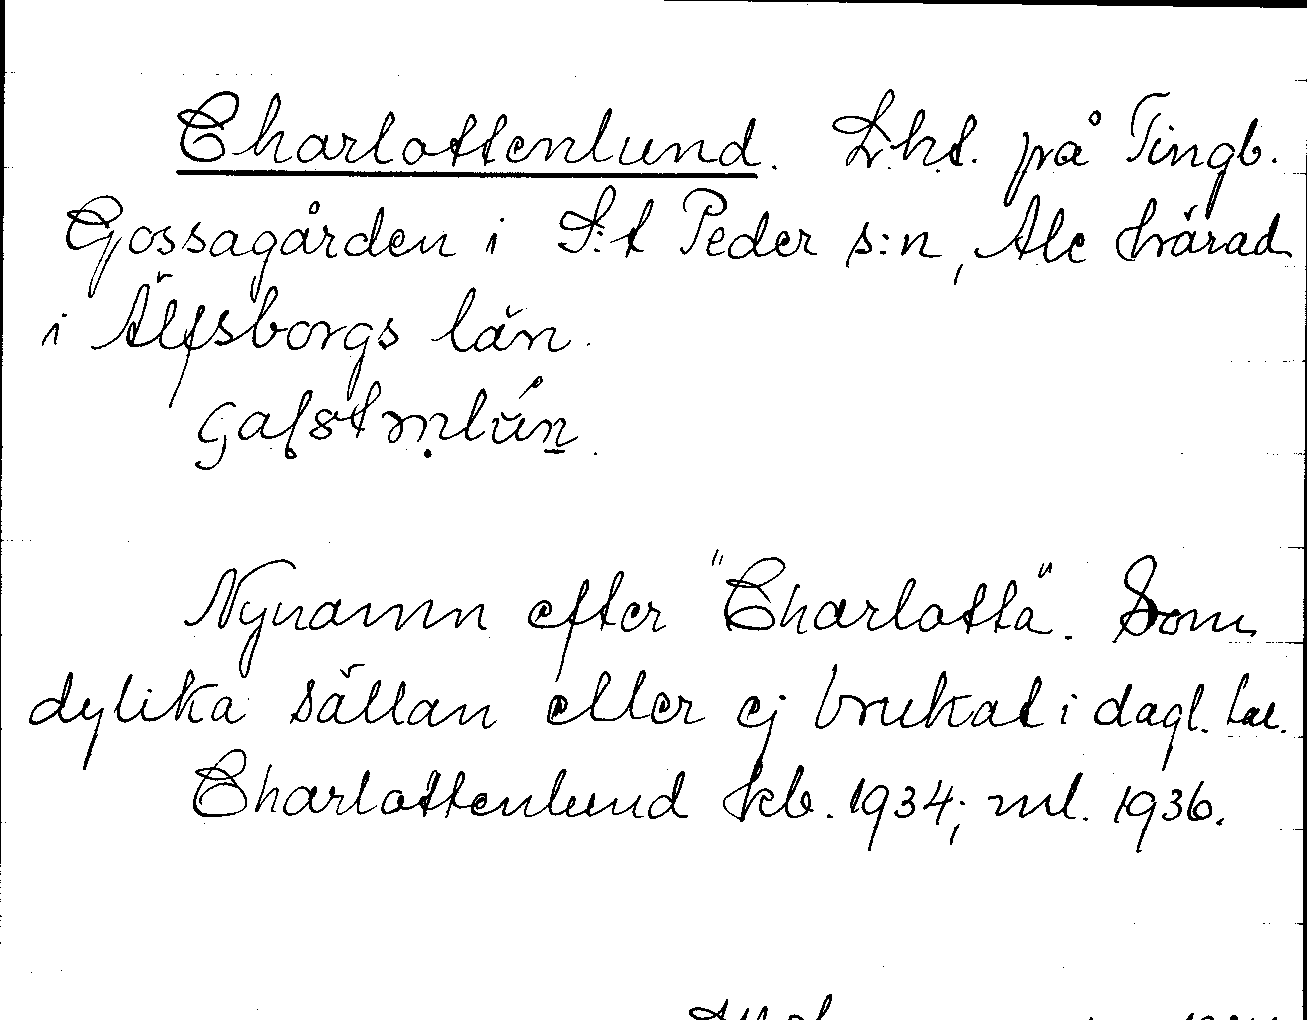 Charlottenlund. Lht. på Tingb.
Gossagården i S:t Peder s:n, Ale härad
i Älfsborgs län.
Nynamn efter "Charlotta". Som
dylika sällan eller ej brukat i dagl. tal.
Charlottenlund kb. 1934; ml. 1936.